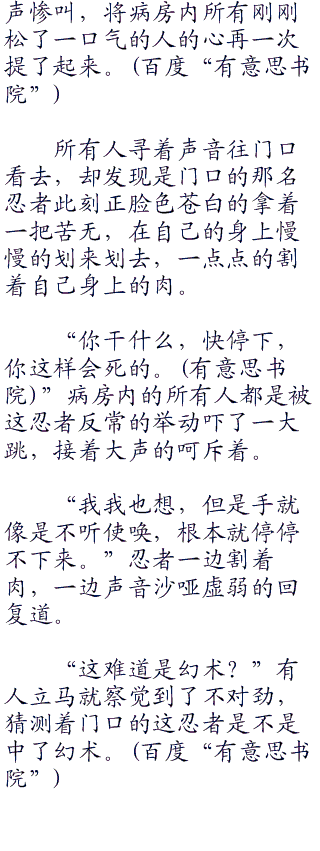 声惨叫，将病房内所有刚刚
松了一口气的人的心再一次
提了起来。(百度“有意思书
院”)
所有人寻着声音往门口
看去，却发现是门口的那名
忍者此刻正脸色苍白的拿着
一把苦无，在自己的身上慢
慢的划来划去，一点点的割
着自己身上的肉。
“你干什么，快停下，
你这样会死的。(有意思书
院)”病房内的所有人都是被
这忍者反常的举动吓了一大
跳，接着大声的呵斥着。
“我我也想，但是手就
像是不听使唤，根本就停停
不下来。”忍者一边割着
肉，一边声音沙哑虚弱的回
复道。
“这难道是幻术？”有
人立马就察觉到了不对劲，
猜测着门口的这忍者是不是
中了幻术。(百度“有意思书
院”)